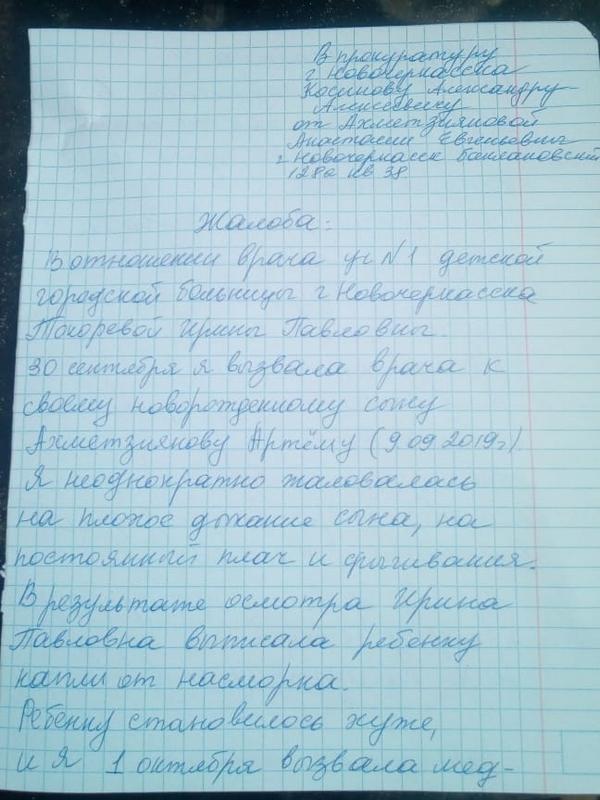 В прокуратуру
г Новочеркасска
Косинову Александру
Алексеевичу
от Ахметзияновой
Анастасии Евгеньевны
г Новочеркасск Баклановский
128а кв 38
Жалоба:
В отношении врача уч №1 детской
городской больницы г Новочеркасска
Токоревой Ирины Павловны.
30 сентября я вызвала врача к
своему новорожденному сыну
Ахметзиянову Артёму (9.09.2019г).
Я неоднократно жаловалась
на плохое дыхание сына, на
постоянный плач и срыгивания.
В результате осмотра Ирина
Павловна выписала ребенку
капли от насморка.
Ребенку становилось хуже,
и я 1 октября вызвала мед-